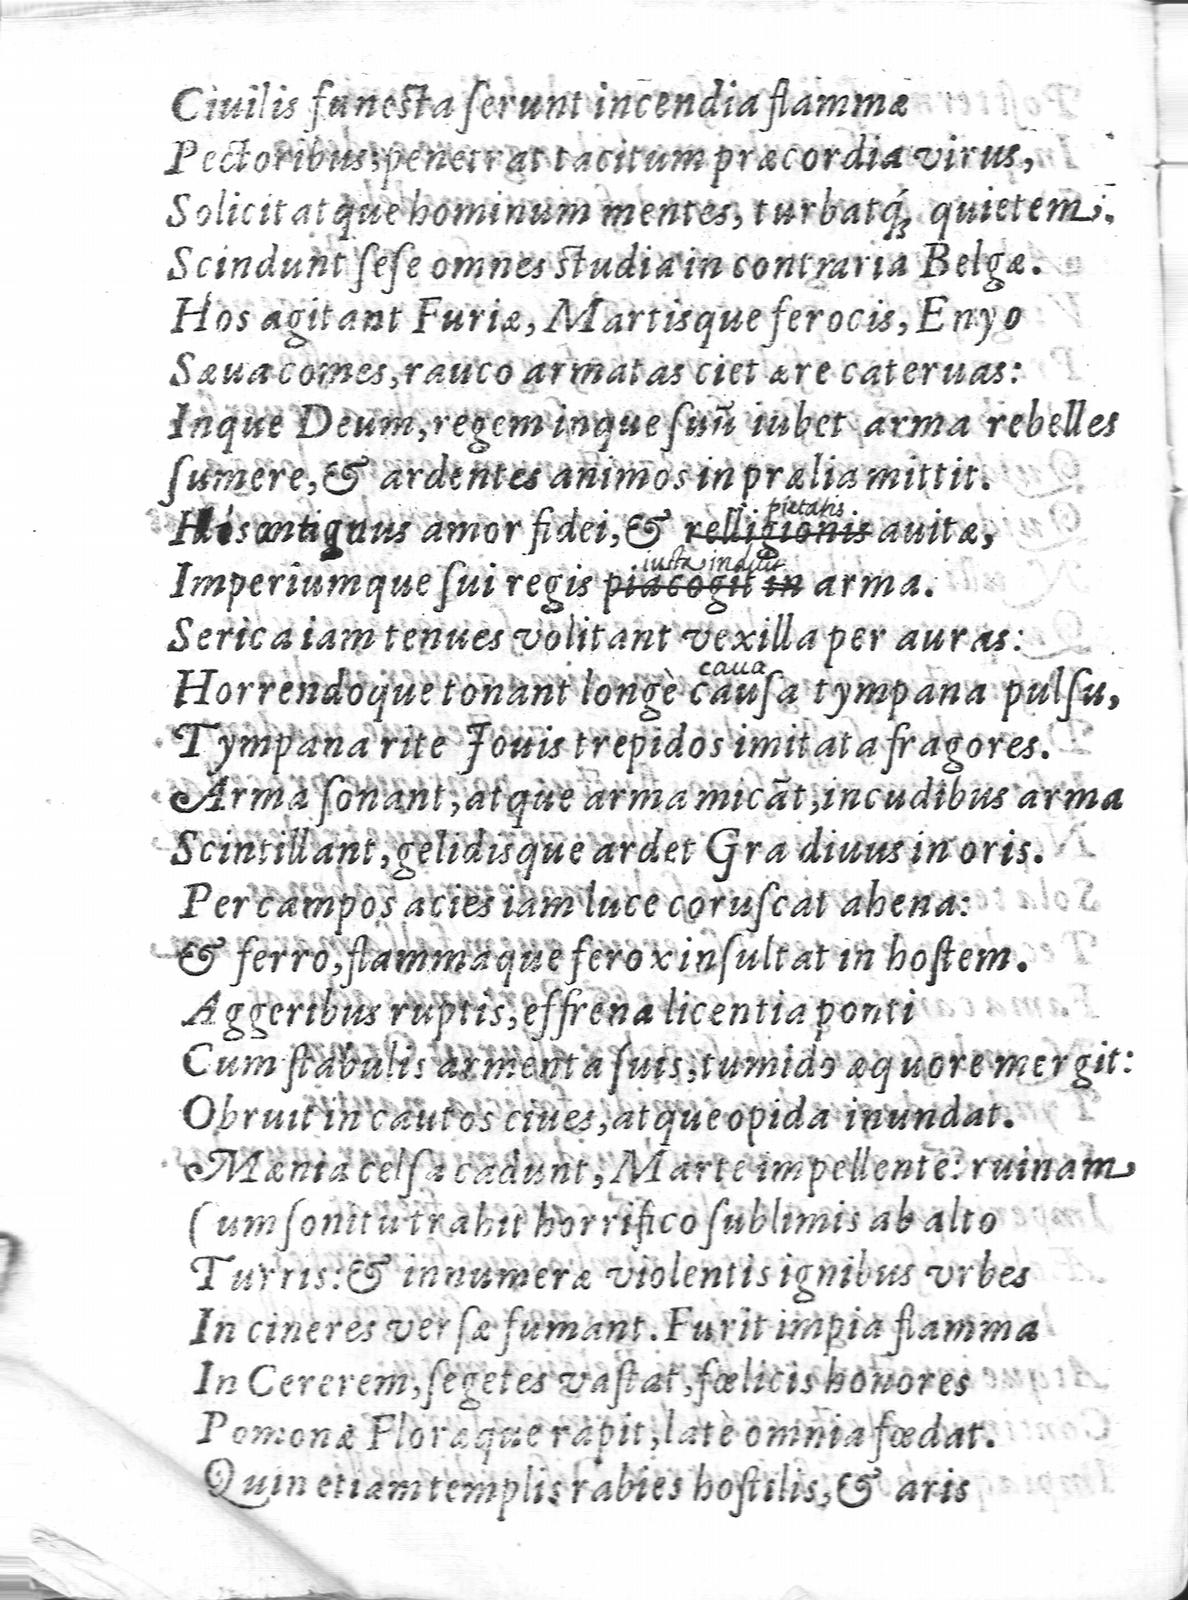 Ciuilis funesta ſerunt incendia flammæ
Pectoribus; penetrat tacitum præcordia virus,
Solicitatque hominum mentes, turbatq́; quietem;.
Scindunt ſeſe omnes studia in contraria Belgæ.
Hos agitant Furiæ, Martisque ferocis, Enyo
Sæua comes, rauco armatas ciet ære cateruas:
Inque Deum, regem inque ſuũ iubet arma rebelles
ſumere, & ardentes animos in prælia mittit.
pietatis
Hos antiquus amor fidei, & relligionis auitæ,
iusta induit
Imperiumque ſui regis pia cogit in arma.
Serica iam tenues volitant vexilla per auras:
caua
Horrendoque tonant longè cauſa tympana pulſu,
Tympana rite Jouis trepidos imitata fragores.
Arma ſonant, atque arma micãt, incudibus arma
Scintillant, gelidisque ardet Gra diuus in oris.
Per campos acies iam luce coruſcat ahena:
& ferro, flammaque ferox inſultat in hoſtem.
Aggeribus ruptis, effrena licentia ponti
Cum ſtabulis armenta ſuis, tumido æquore mergit:
Obruit in cautos ciues, atque opida inundat.
Mænia celſa cadunt, Marte impellente: ruinam
Cum ſonitu trahit horrifico ſublimis ab alto
Turris: & innumeræ violentis ignibus vrbes
In cineres verſæ fumant. Furit impia flamma
In Cererem, ſegetes vaſtat, fœlicis honores
Pomonæ Floræque rapit, latè omnia fœdat.
Quin etiam templis rabies hoſtilis, & aris